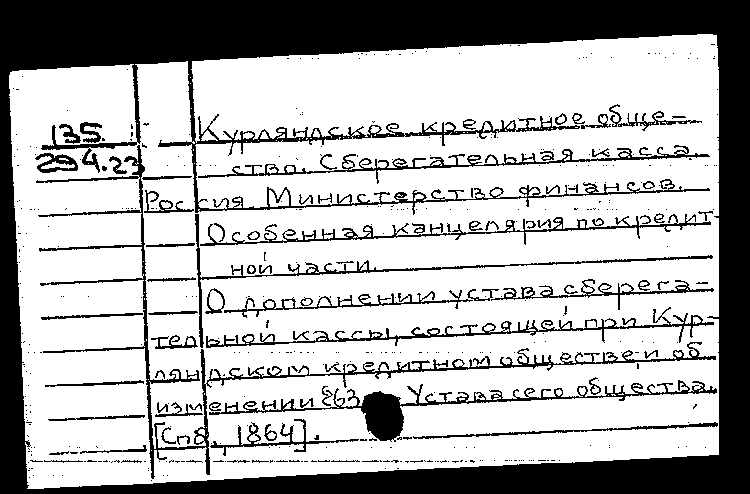 135
294.23
Курляндское кредитное обще-
ство. Сберегательная касса
Россия. Министерство финансов.
Особенная канцелярия по кредит-
ной части.
О дополнении устава сберега-
тельной кассы, состоящей при Кур-
ляндском кредитном обществе, и об
изменении §63 Устава сего общества.
[Спб., 1864].